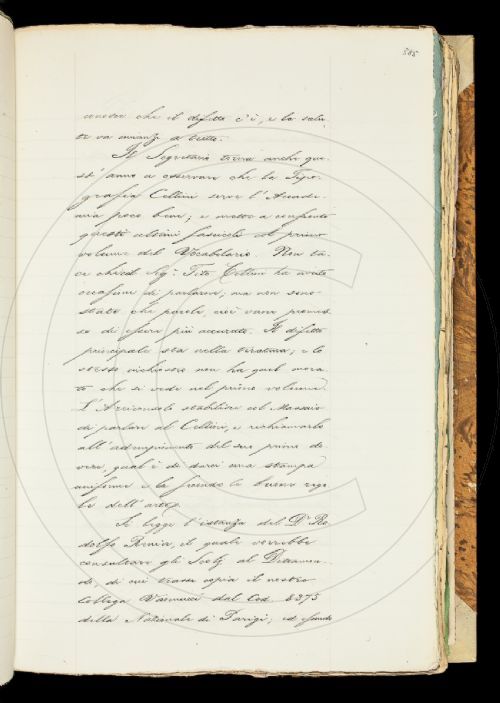 585
che il difetto c'è, e la salu-
te va innanzi a tutto.
Il Segretario trova anche que-
st'anno a osservare che la Tipo-
grafia Cellini serve l'Accade-
mia poco bene; e mette a confronto
questi ultimi fascicoli al primo
volume del Vocabolario. Non ta-
ce che col Sigr. Tito Cellini ha avuto
occasione di parlarne; ma non sono
state che parole, cioè vane promes-
se di essere più accurato. Il difetto
principale sta nella tiratura; e lo
stesso inchiostro non ha quel mora-
to che si vede nel primo volume.
L'Arciconsolo stabilisce col Massaio
di parlare al Cellini, e richiamarlo
all'adempimento del suo primo do-
vere, qual è di darci una stampa
uniforme e la secondo le buone rego-
le dell'arte.
Si legge l'istanza del Dr. Ro-
dolfo Renier, il quale vorrebbe
consultare gli Scelti al Dittamon-
do, di cui trasse copia il nostro
Collega Vannucci dal Cod. 8375
della Nazionale di Parigi; ed essendo